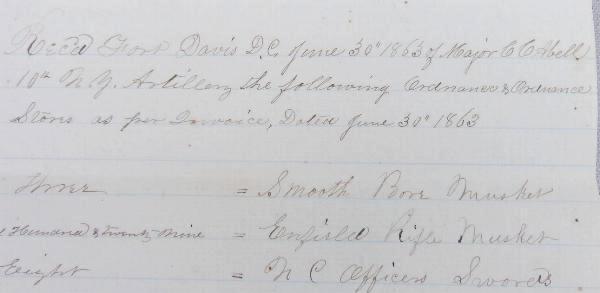 Rec'd Fort Davis D.C. June 30" 1863 of Major C C Abell
10th N.Y. Artillery the following Ordnance & Ordnance
Stores as per Invoice, Dated June 30" 1863
Three = Smooth Bore Musket
Hundred & twenty Nine = Enfield Rifle Musket
Eight = N C Officers Swords